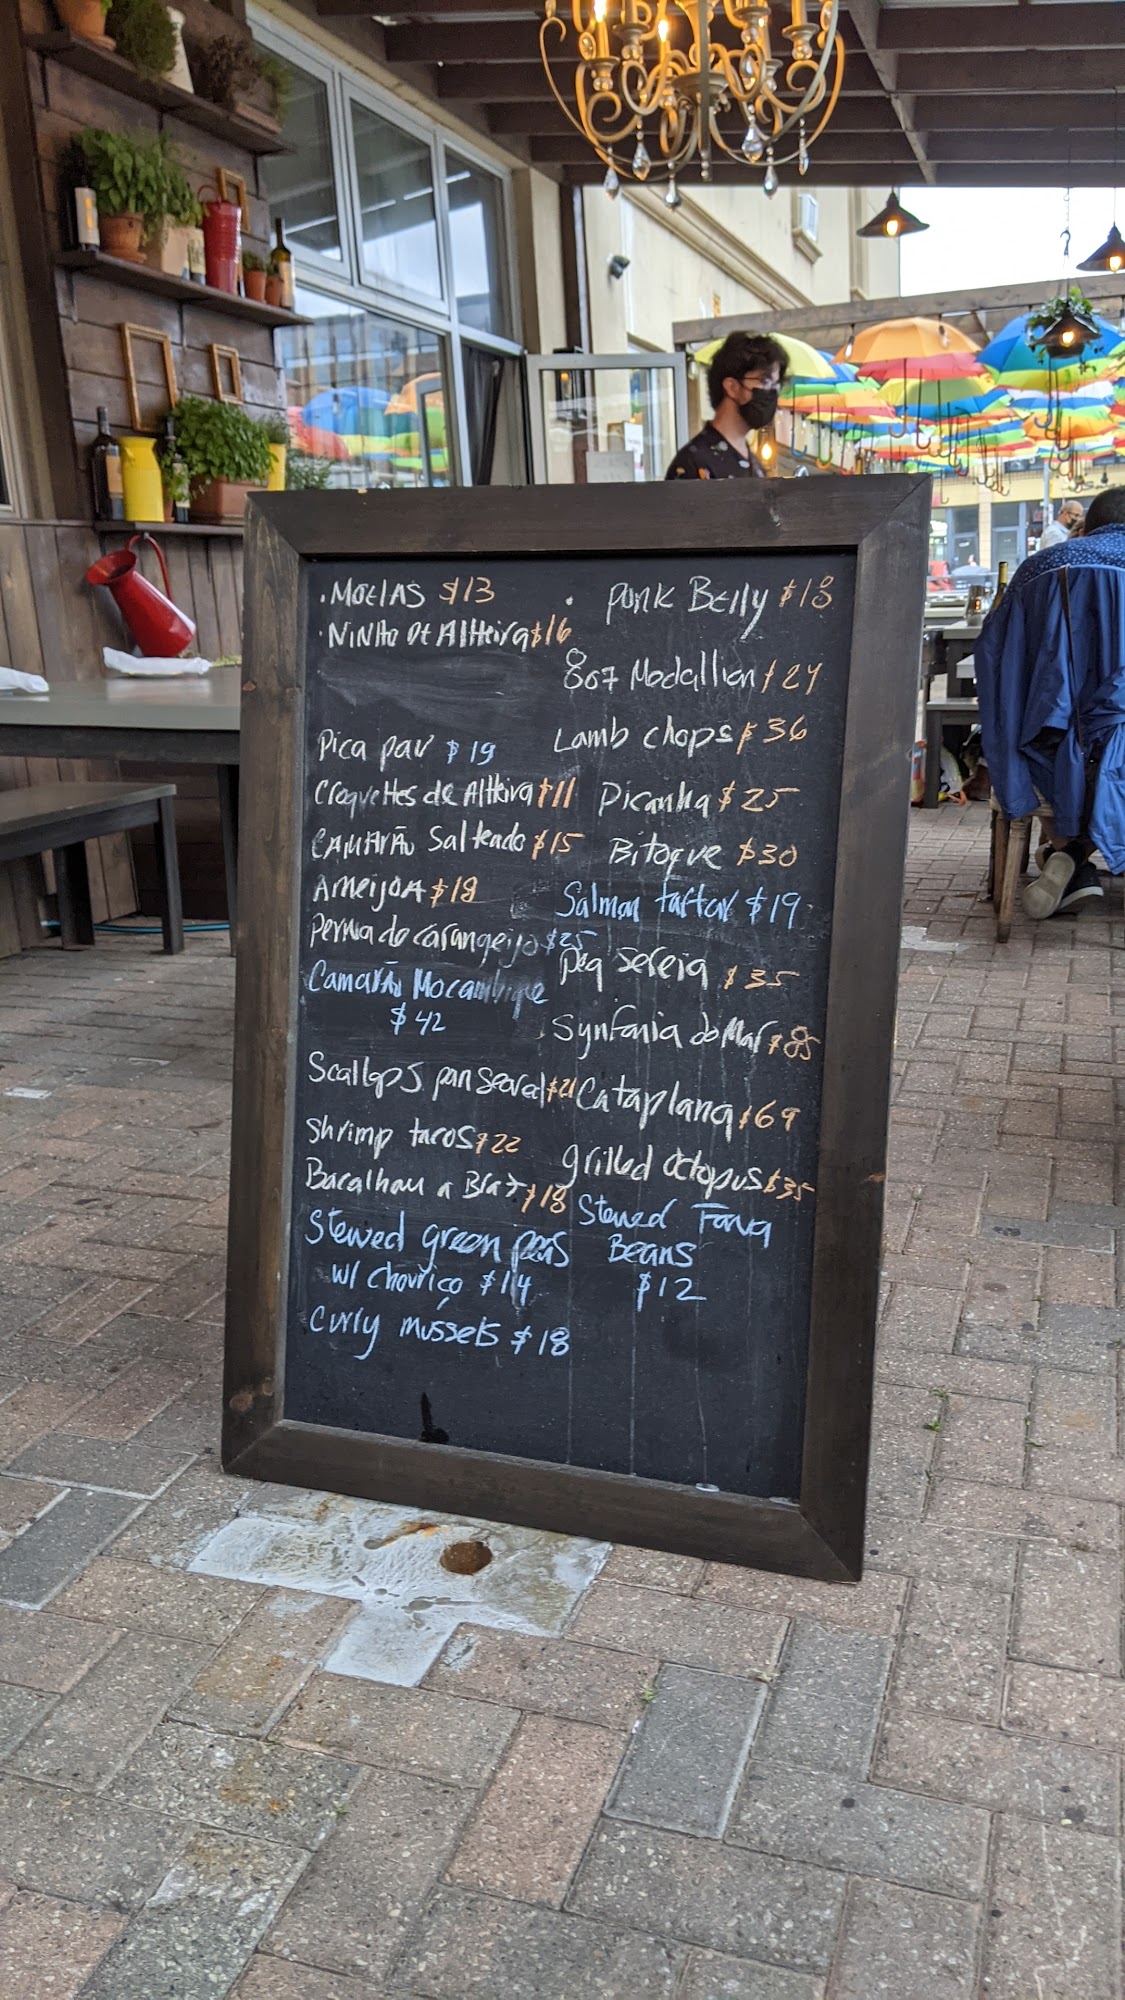 ·MOElAS $13
·NINHO DE AlHEirA $16
Pica pau $19
Croquettes de Alheira $11
CAMArÃO Salteado $15
AMEijOA $18
perna de carangeijo $25
Camarão Mocambique
$42
Scallops pan seared $21
Shrimp tacos $22
Bacalhau a Braz $18
Stewed green peas
w/ Chouriço $14
Curry mussels $18
· Pork Belly $18
8oz Medallion $24
Lamb chops $36
Picanha $25
Bitoque $30
Salmon tartar $19
Peq sereia $35
Synfonia do Mar $85
Cataplana $69
grilled Octopus $35
Stewed Fava
Beans
$12